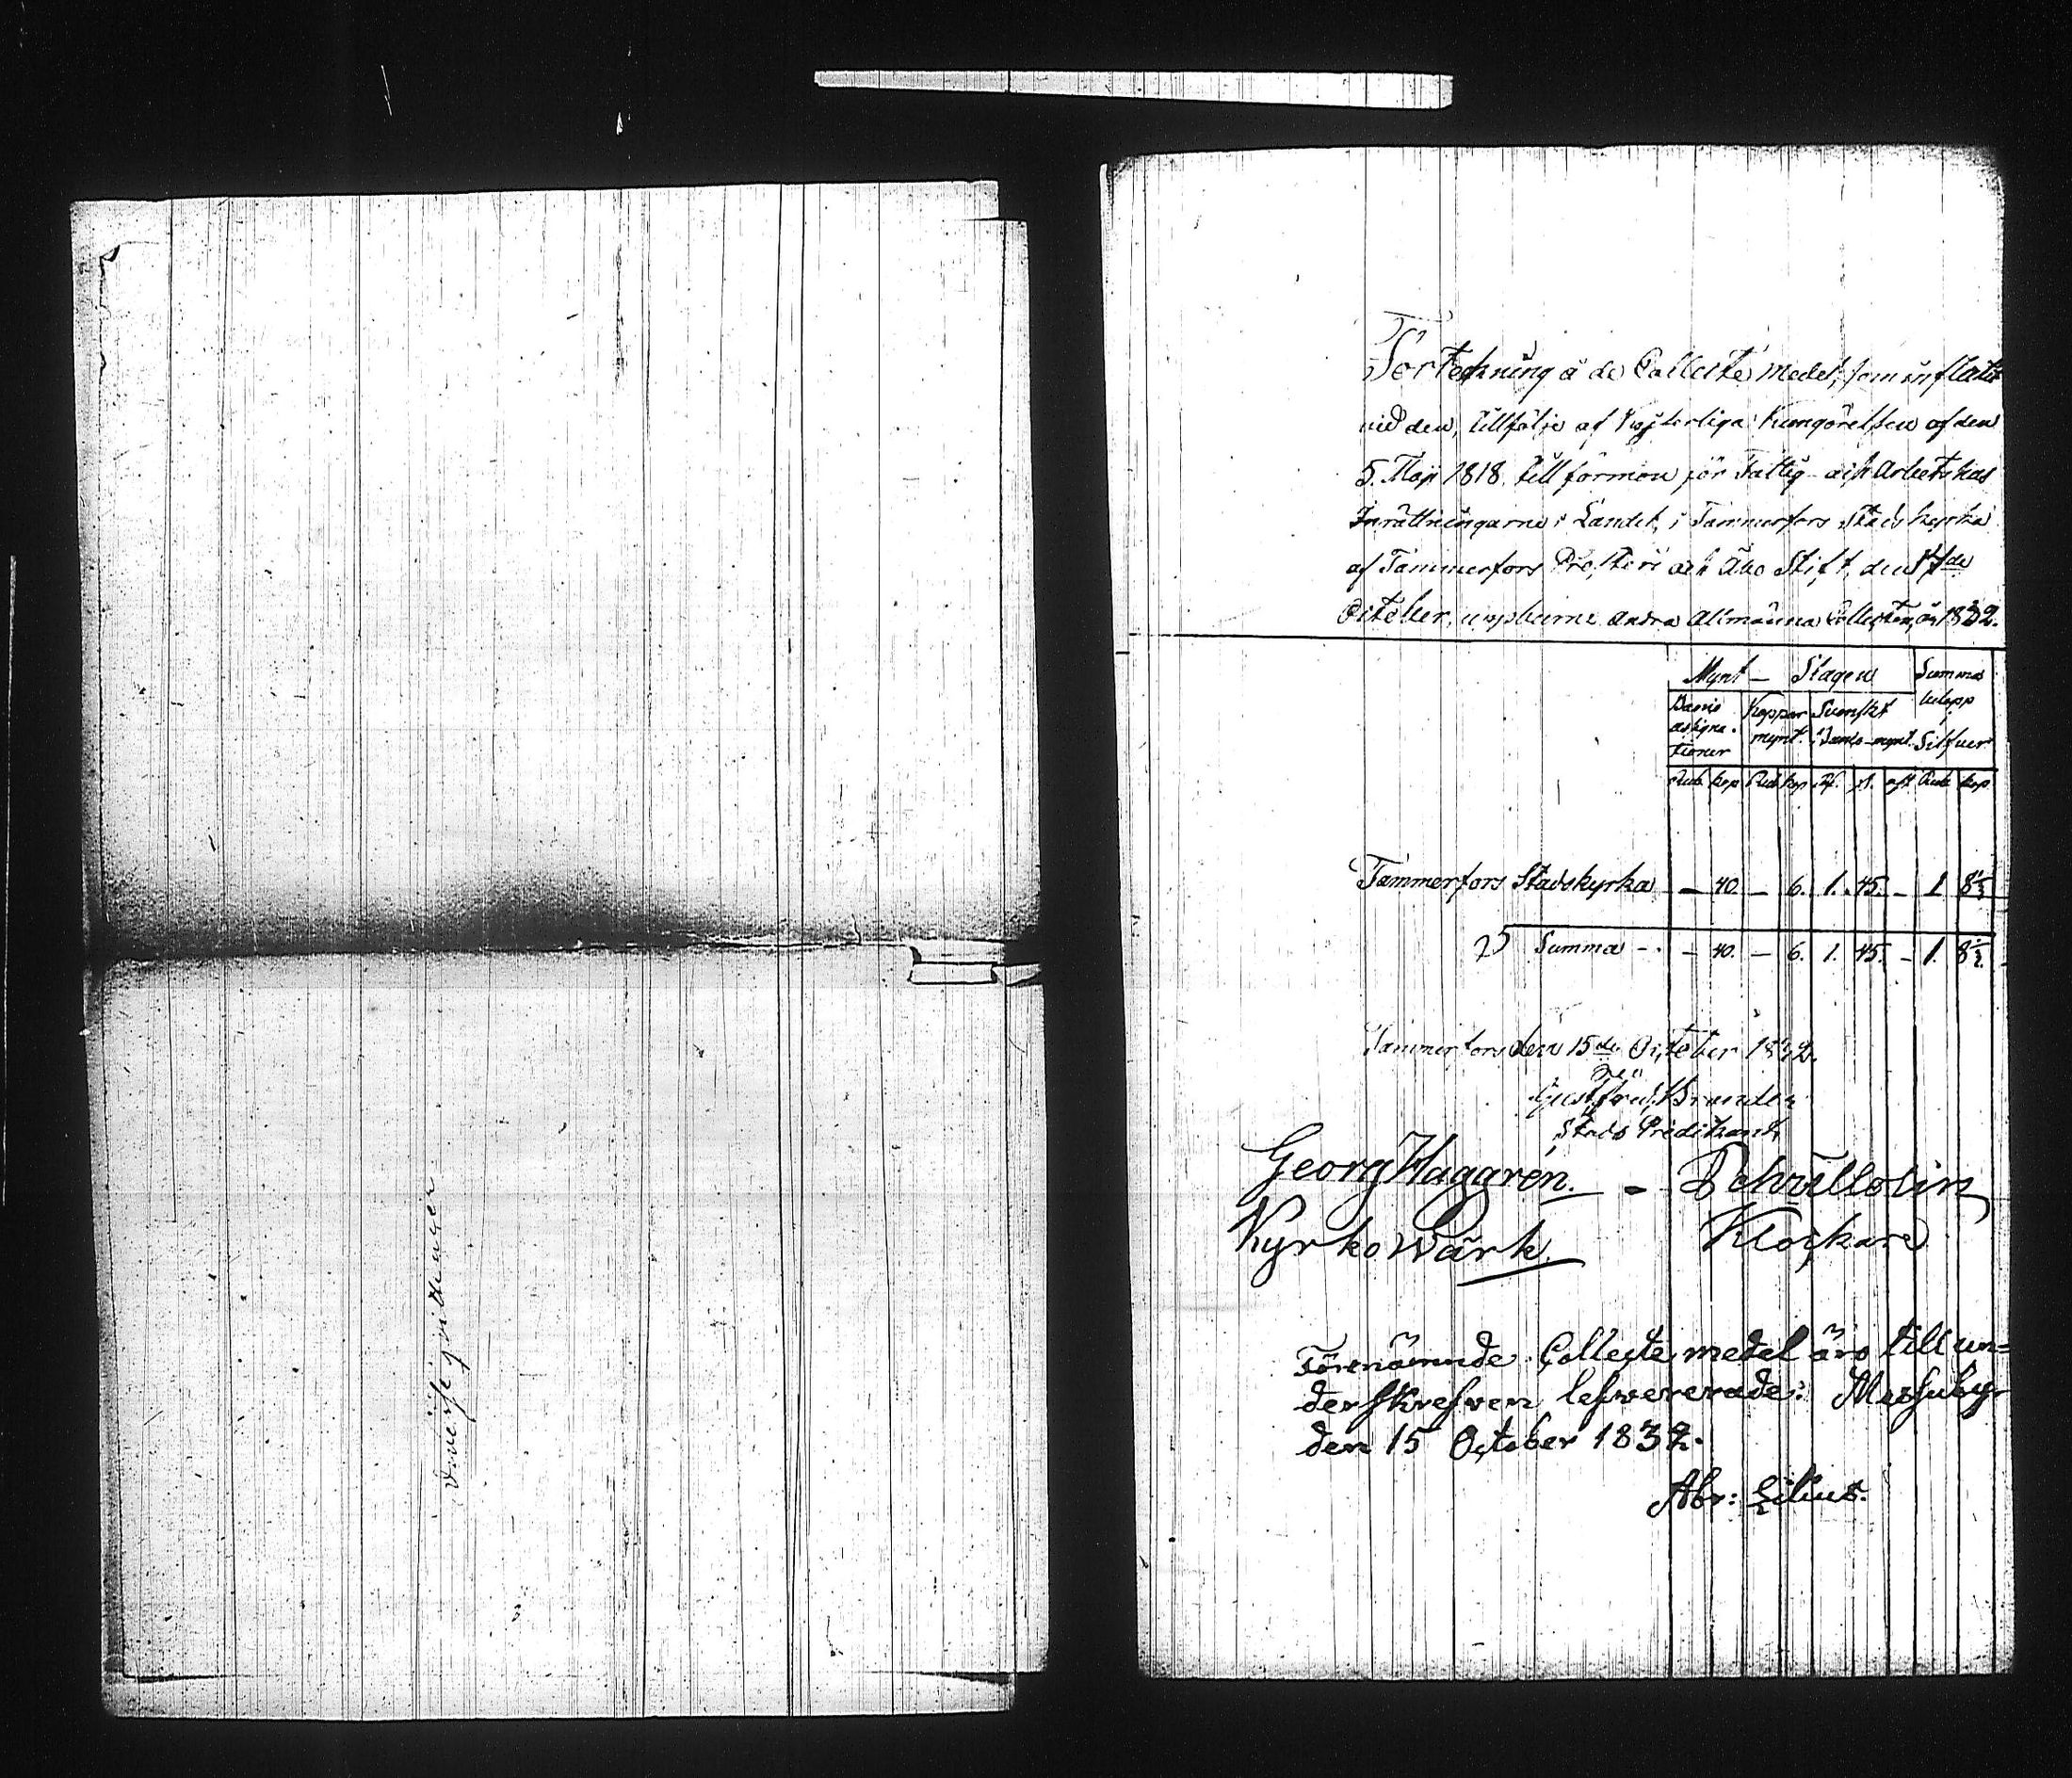 Förteckning å de Collecte medel, som influtit
vid den, tillfölje af Kejserliga Kungörelsen af den
5. Maji 1818. till förmon för Fattig- och Arbetshus
Inrättningarne i Landet, i Tammerfors Stads kyrka
af Tammerfors Prosteri och Åbo Stift, den
October, uppburne andra Allmänna Collecten, år 1832.
Mynt - Slagen Summa
belopp
Silfver
Banco
assigna-
tioner
Koppar
mynt.
Svenskt
Banco-mynt.
Rub. kop Rub kop Rd. sk. rst Rub kop
Tammerfors Stadskyrka - 40. - 6. 1. 45. - 1 8½
Summa - - 40. - 6. 1. 45. - 1. 8½
Tammerfors den 15de October 1832.
Gust. Fred.
Stads Predikant
Georg Haggrén. -
Kyrko Wärk. Klockare
Förenämnde Collecte medel äro till un=
derskrefven lefvererade: Messuby
den 15 October 1832.
Abr: Lilius.